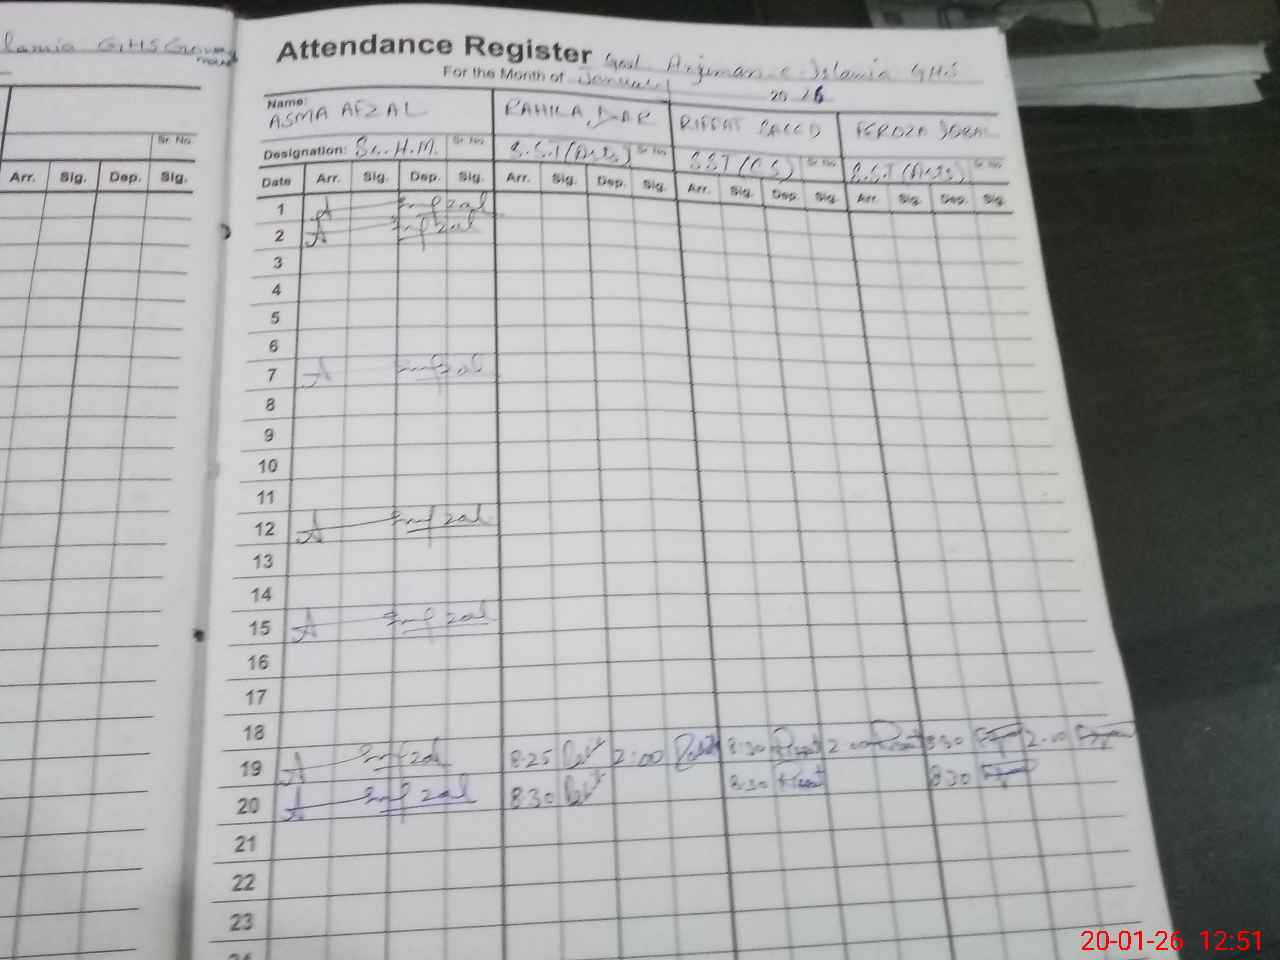 lamia GHS
Attendance Register Govt. Anjuman e Islamia GHS
For the Month of January 2026
Name: ASMA AFZAL RAHILA DAR RIFFAT SAEED FEROZA IQBAL
Sr No.
Designation: Sr. H.M. Sr No. S.S.T (Arts) Sr No. SST (CS) Sr No. S.S.T (Arts) Sr No.
Arr. Sig. Dep. Sig.
Date Arr. Sig. Dep. Sig. Arr. Sig. Dep. Sig. Arr. Sig. Dep. Sig. Arr. Sig. Dep. Sig.
1 A
2 A
3
4
5
6
7 A
8
9
10
11
12 A
13
14
15 A
16
17
18
19 A 8:25 2:00 8:30 2:00 8:30 2:00
20 A 8:30 8:30 8:30
21
22
23
24
20-01-26 12:51